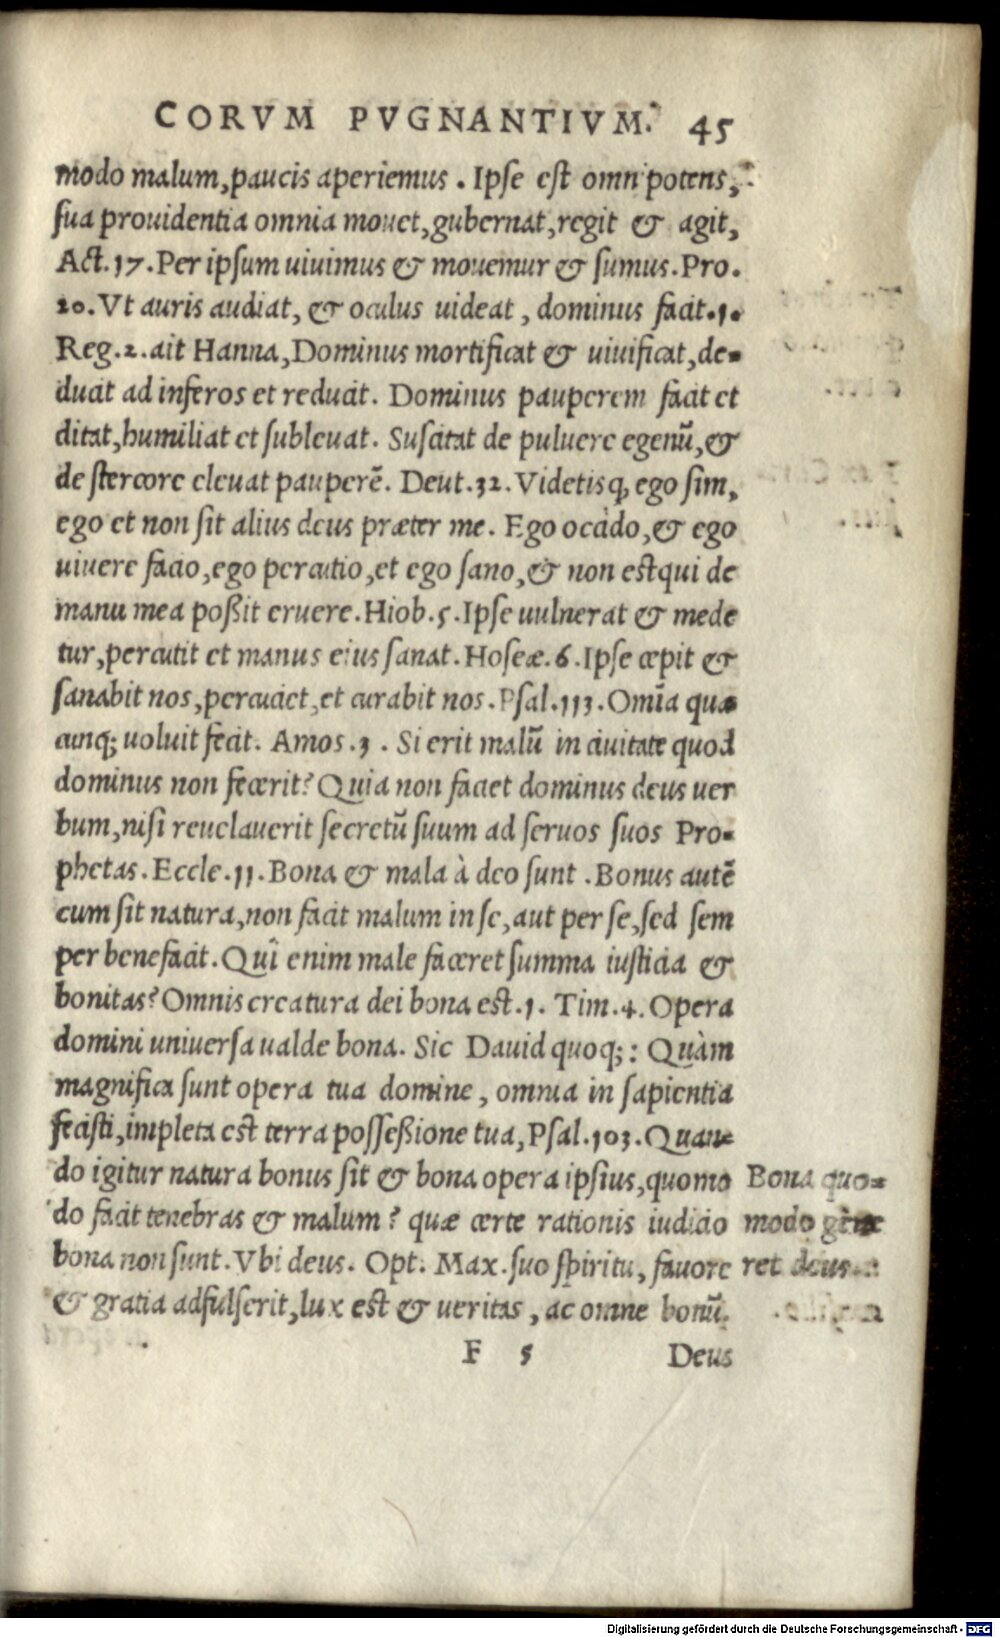 CORVM PVGNANTIVM. 45
modo malum, paucis aperiemus. Ipſe eſt omnipotens,
ſua prouidentia omnia mouet, gubernat, regit & agit,
Act. 17. Per ipſum uiuimus & mouemur & ſumus. Pro.
20. Vt auris audiat, & oculus uideat, dominus facit. 1.
Reg. 2. ait Hanna, Dominus mortificat & uiuificat, de-
ducit ad inferos et reducit. Dominus pauperem facit et
ditat, humiliat et ſubleuat. Suſcitat de puluere egenũ, &
de ſtercore eleuat pauperẽ. Deut. 32. Videtis ꝙ ego ſim,
ego et non ſit alius deus præter me. Ego occido, & ego
uiuere facio, ego percutio, et ego ſano, & non eſt qui de
manu mea poßit eruere. Hiob. 5. Ipſe uulnerat & mede
tur, percutit et manus eius ſanat. Hoſeæ. 6. Ipſe cœpit &
ſanabit nos, percutiet, et curabit nos. Pſal. 113. Omĩa quæ
cunq; uoluit fecit. Amos. 3. Si erit malũ in ciuitate quod
dominus non fecerit? Quia non faciet dominus deus uer
bum, niſi reuelauerit ſecretũ ſuum ad ſeruos ſuos Pro-
phetas. Eccle. 11. Bona & mala à deo ſunt. Bonus autẽ
cum ſit natura, non facit malum in ſe, aut per ſe, ſed ſem
per benefacit. Quî enim male faceret ſumma iuſticia &
bonitas? Omnis creatura dei bona eſt. 1. Tim. 4. Opera
domini uniuerſa ualde bona. Sic Dauid quoq;: Quàm
magnifica ſunt opera tua domine, omnia in ſapientia
feciſti, impleta eſt terra poſſeßione tua, Pſal. 103. Quan-
do igitur natura bonus ſit & bona opera ipſius, quomo
do facit tenebras & malum? quæ certe rationis iudicio
bona non ſunt. Vbi deus. Opt. Max. ſuo ſpiritu, fauore
& gratia adfulſerit, lux eſt & ueritas, ac omne bonũ.
Bona quo-
modo
ret deus
F 5 Deus
Digitalisierung gefördert durch die Deutsche Forschungsgemeinschaft - DFG